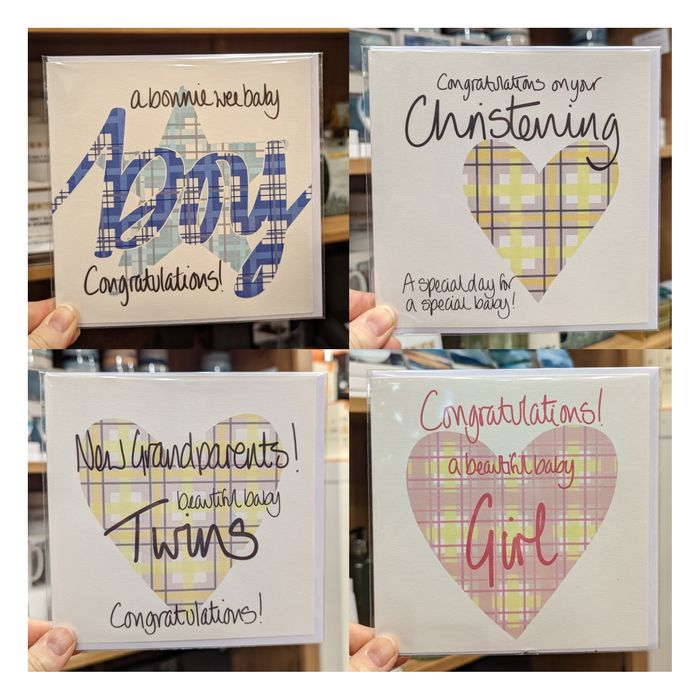 a bonnie wee baby
Boy
Congratulations!
Congratulations on your
Christening
A special day for
a special baby!
New Grandparents!
beautiful baby
Twins
Congratulations!
Congratulations!
a beautiful baby
Girl